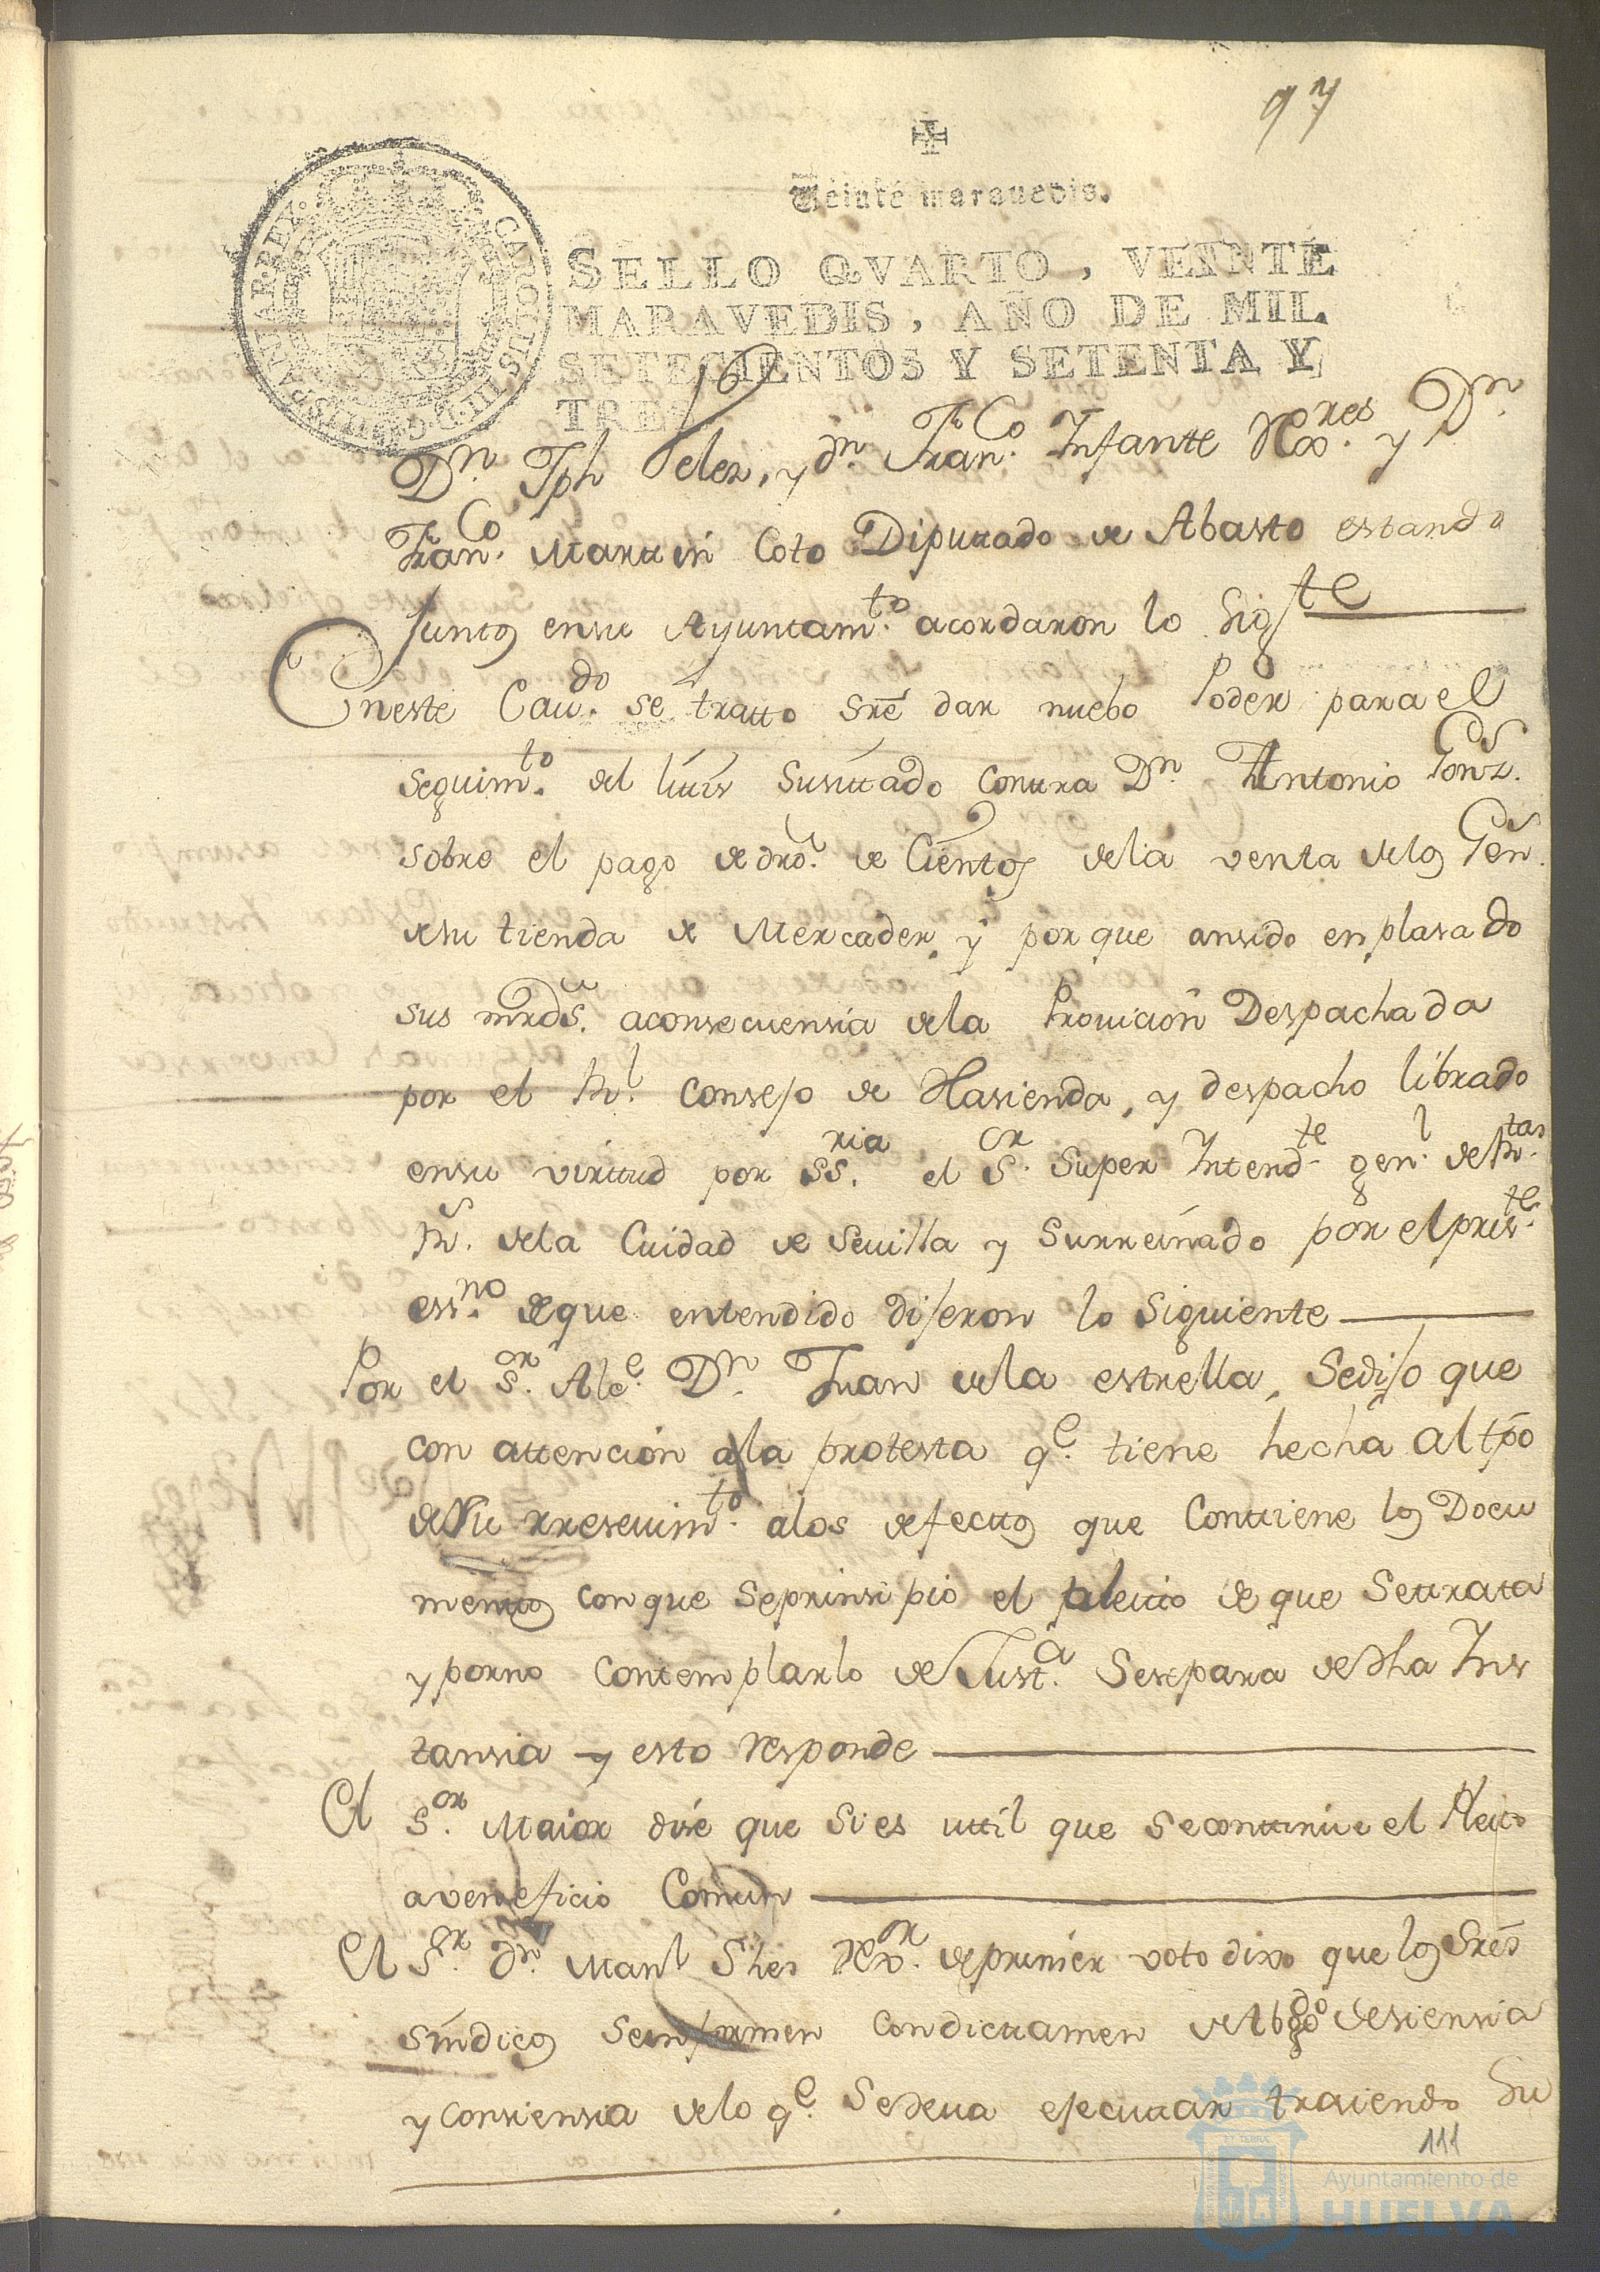 97
Veinte maravedis.
SELLO QVARTO, VEINTE
MARAVEDIS, AÑO DE MIL
SETECIENTOS Y SETENTA Y
TRES
CAROLUS III D G HISPANIAR REX
Dn. Jph Velez, y dn. Franco. Infante Rexres. y Dn.
Franco. Martin Coto Diputado de Abasto estando
Juntos ensu Ayuntamto. acordaron lo Sigte
Eneste Cavdo. se tratto sre dar nuebo Poder para el
seguimto. del litis susitado contra Dn. Antonio Gonz.
sobre el pago de dros. de Cientos dela venta delos Gens.
desu tienda de Mercader, y por que ansido enplasado
sus mrds. aconsecuensia dela Provicion Despachada
por el Rl. Consejo de Hasienda, y despacho librado
ensu virtud por SSria. el Sor. Super Intendte. genl. de Rtas.
Rs. dela Cuidad de Sevilla y Surreinado por el preste.
essno. de que entendido dijeron lo Siguiente
Por el Sor. Alce. Dn. Juan dela estrella, Sedijo que
con attención a la protesta qe. tiene hecha al tpo
de Su rresevimto. alos defectos que Contiene los Docu
mentos con que seprinsipio el pleito de que Settrata
y porno contemplarlo de Justa. Sesepara de dha Ins
tansia y esto Responde
El Sor. Maior dise que Sies uttil que secontinúe el Pleito
a veneficio Comun
El Sr. dn. Manl Shes Rexor. de primer voto dixo que los Sres
sindicos seinformen con dictamen de Abgdo de siensia
y consiensia de lo qe. Sedeva ejecutar trasiendo Su
111
Ayuntamiento de
HUELVA